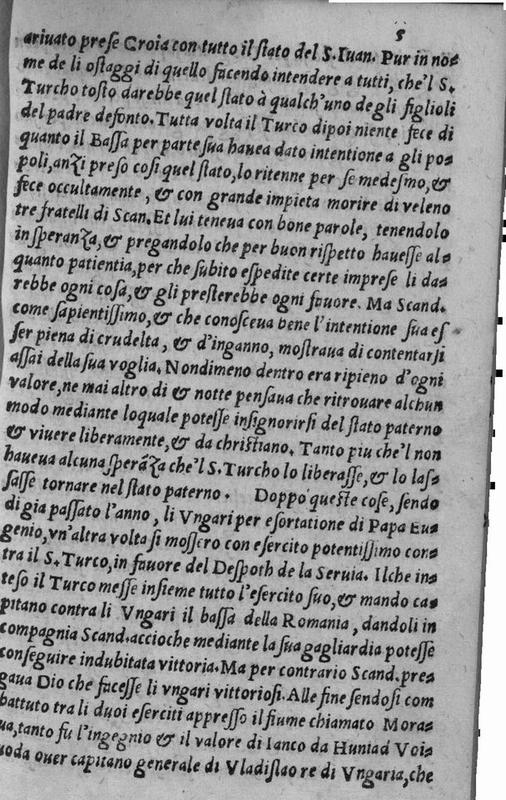 5
ariuato prese Croia con tutto il stato del S. Iuan. Pur in no=
me de li ostaggi di quello facendo intendere a tutti, che'l S.
Turcho tosto darebbe quel stato à qualch'uno degli figlioli
del padre defonto. Tutta volta il Turco dipoi niente fece di
quanto il Bassa per parte sua hauea dato intentione a gli po=
poli, anzi preso cosi quel stato, lo ritenne per se medesmo, &
fece occultamente, & con grande impieta morire di veleno
tre fratelli di Scan. Et lui teneua con bone parole, tenendolo
in speranza, & pregandolo che per buon rispetto hauesse al=
quanto patientia, per che subito espedite certe imprese li da=
rebbe ogni cosa, & gli presterebbe ogni fauore. Ma Scand.
come sapientissimo, & che conosceua bene l'intentione sua es
ser piena di crudelta, & d'inganno, mostraua di contentarsi
assai della sua voglia. Nondimeno dentro era ripieno d'ogni
valore, ne mai altro di & notte pensaua che ritrouare alchun
modo mediante loquale potesse insignorirsi del stato paterno
& viuere liberamente, & da christiano. Tanto piu che'l non
haueua alcuna sperāza che'l S. Turcho lo liberasse, & lo las=
sasse tornare nel stato paterno. Doppo queste cose, sendo
di gia passato l'anno, li Vngari per esortatione di Papa Eu=
genio, vn'altra volta si mossero con esercito potentissimo con=
tra il S. Turco, in fauore del Despoth de la Seruia. Ilche in=
teso il Turco messe insieme tutto l'esercito suo, & mando ca=
pitano contra li Vngari il bassa della Romania, dandoli in
compagnia Scand. accioche mediante la sua gagliardia potesse
conseguire indubitata vittoria. Ma per contrario Scand. pre=
gaua Dio che facesse li vngari vittoriosi. Alle fine sendosi com
battuto tra li duoi eserciti appresso il fiume chiamato Mora=
ua, tanto fu l'ingegnio & il valore di Ianco da Huniad Voi=
uoda ouer capitano generale di Vladislao re di Vngaria, che